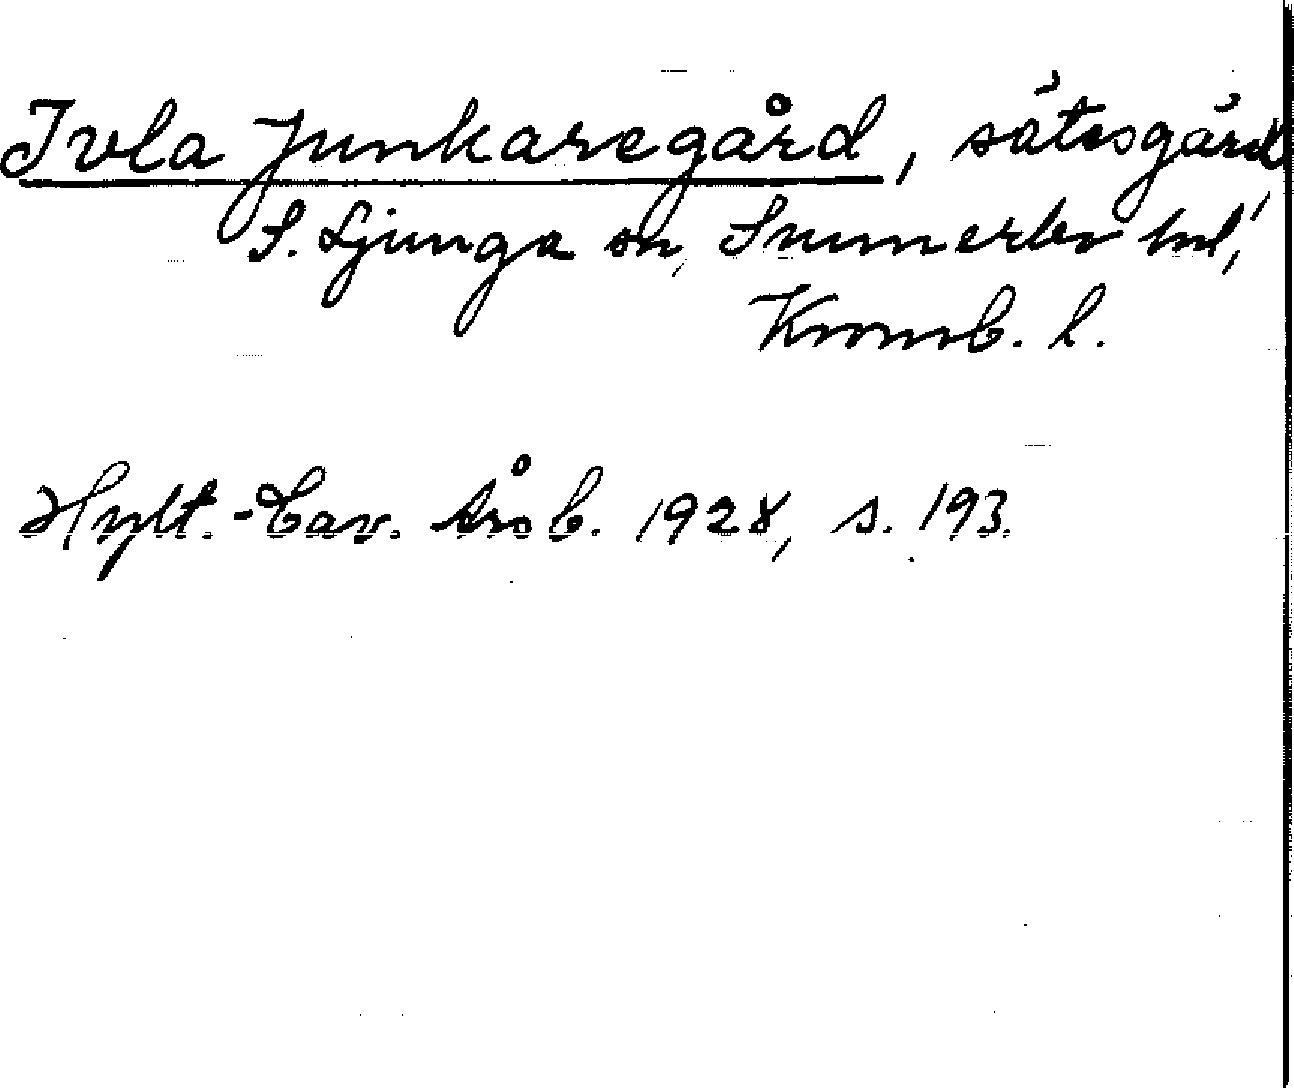 Ivla Junkaregård, sätesgård,
S. Ljunga sn, Sunnerbo hd,
Kronob. l.
Hylt.-Cav. Årsb. 1928, s. 193.